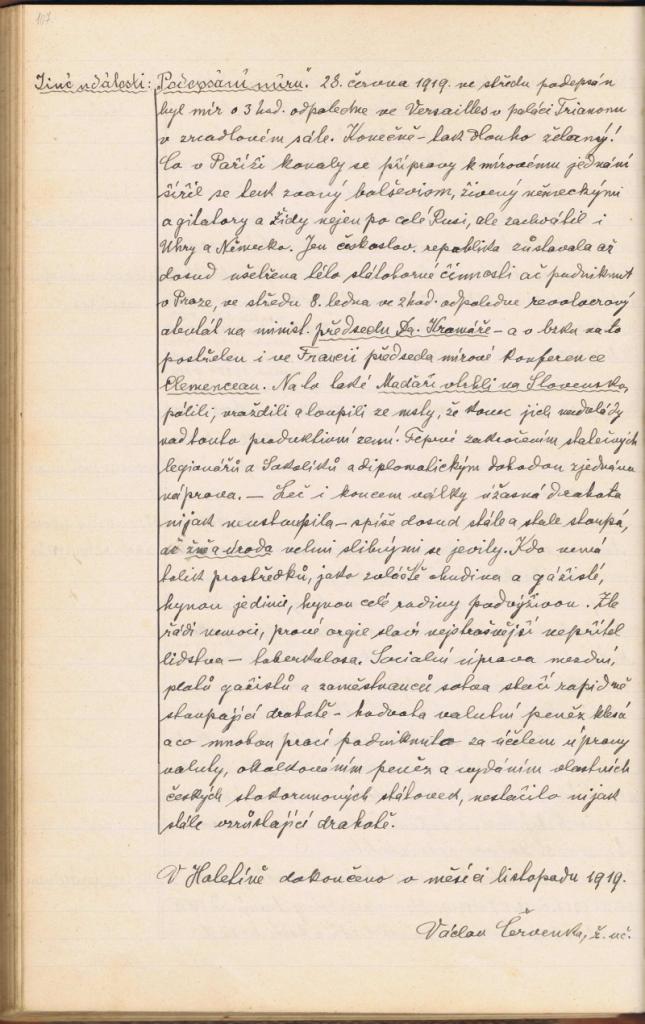 107.
Jiné události: "Podepsání míru". 28. června 1919. ve středu podepsán
byl mír o 3 hod. odpoledne ve Versailles v paláci Trianonu
v zrcadlovém sále. Konečně – tak dlouho želaný!
Co v Paříži konaly se přípravy k mírovému jednání
šířil se tak zvaný bolševism, živený německými
agitatory a Židy nejen po celé Rusi, ale zachvátil i
Uhry a Německo. Jen českoslov. republika zůstavala až
dosud ušetřena této státoborné činnosti ač podniknut
v Praze, ve středu 8. ledna ve 2 hod. odpoledne revolverový
atentát na minist. předsedu Dr. Kramáře – a v brzku na to
postřelen i ve Francii předseda mírové konference
Clemenceau. Na to také Maďaři vtrhli na Slovensko,
pálili, vraždili a loupili ze msty, že konec jich nadvlády
nad touto produktivní zemí. Teprvé zakročením statečných
legionářů a Sokolíků a diplomatickým dohodou zjednána
náprava. – Leč i koncem války úžasná drahota
nijak neustoupila – spíše dosud stále a stale stoupá,
ač žně a úroda velmi slibnými se jevily. Kdo nemá
tolik prostředků, jako zvláště chudina a gážisté,
hynou jedinci, hynou celé rodiny podvýživou. Zle
řádí nemoci, pravé orgie slaví nejstrašnější nepřítel
lidstva – tuberkulosa. Socialní úprava mezdní,
platů gážistů a zaměstnanců sotva stačí rapidně
stoupající drahotě – hodnota valutní peněz klesá
a co mnohou prací podniknuto za účelem úpravy
valuty, okolkováním peněz a vydáním vlastních
českých stokorunových státovek, nestačilo nijak
stále vzrůstající drahotě.
V Holetíně dokončeno v měsíci listopadu 1919.
Václav Červenka, ř. uč.